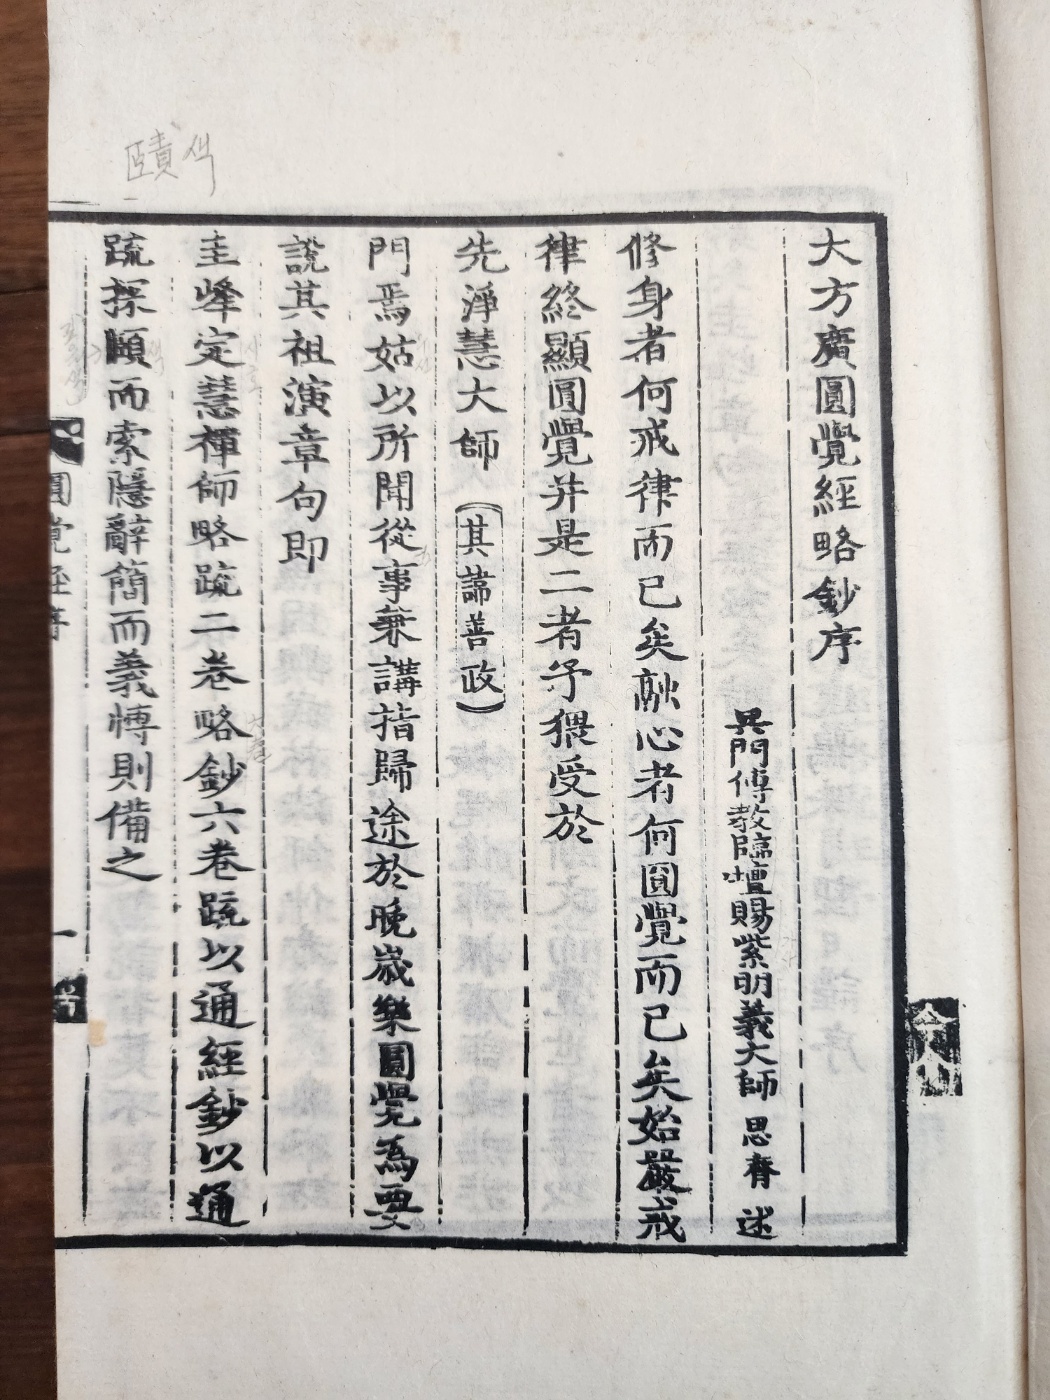 大方廣圓覺經略鈔序
吳門傅教臨壇賜紫明義大師 思齊 述
修身者何戒律而已矣融心者何圓覺而已矣始嚴戒
律終顯圓覺幷是二者予猥受於
先淨慧大師(其諱善政)
門焉姑以所聞從事兼講指歸途於晚歲樂圓覺為要
說其祖演章句即
圭峰定慧禪師略疏二卷略鈔六卷疏以通經鈔以通
疏探賾而索隱辭簡而義愽則備之
圓覺經序
一
賾 색